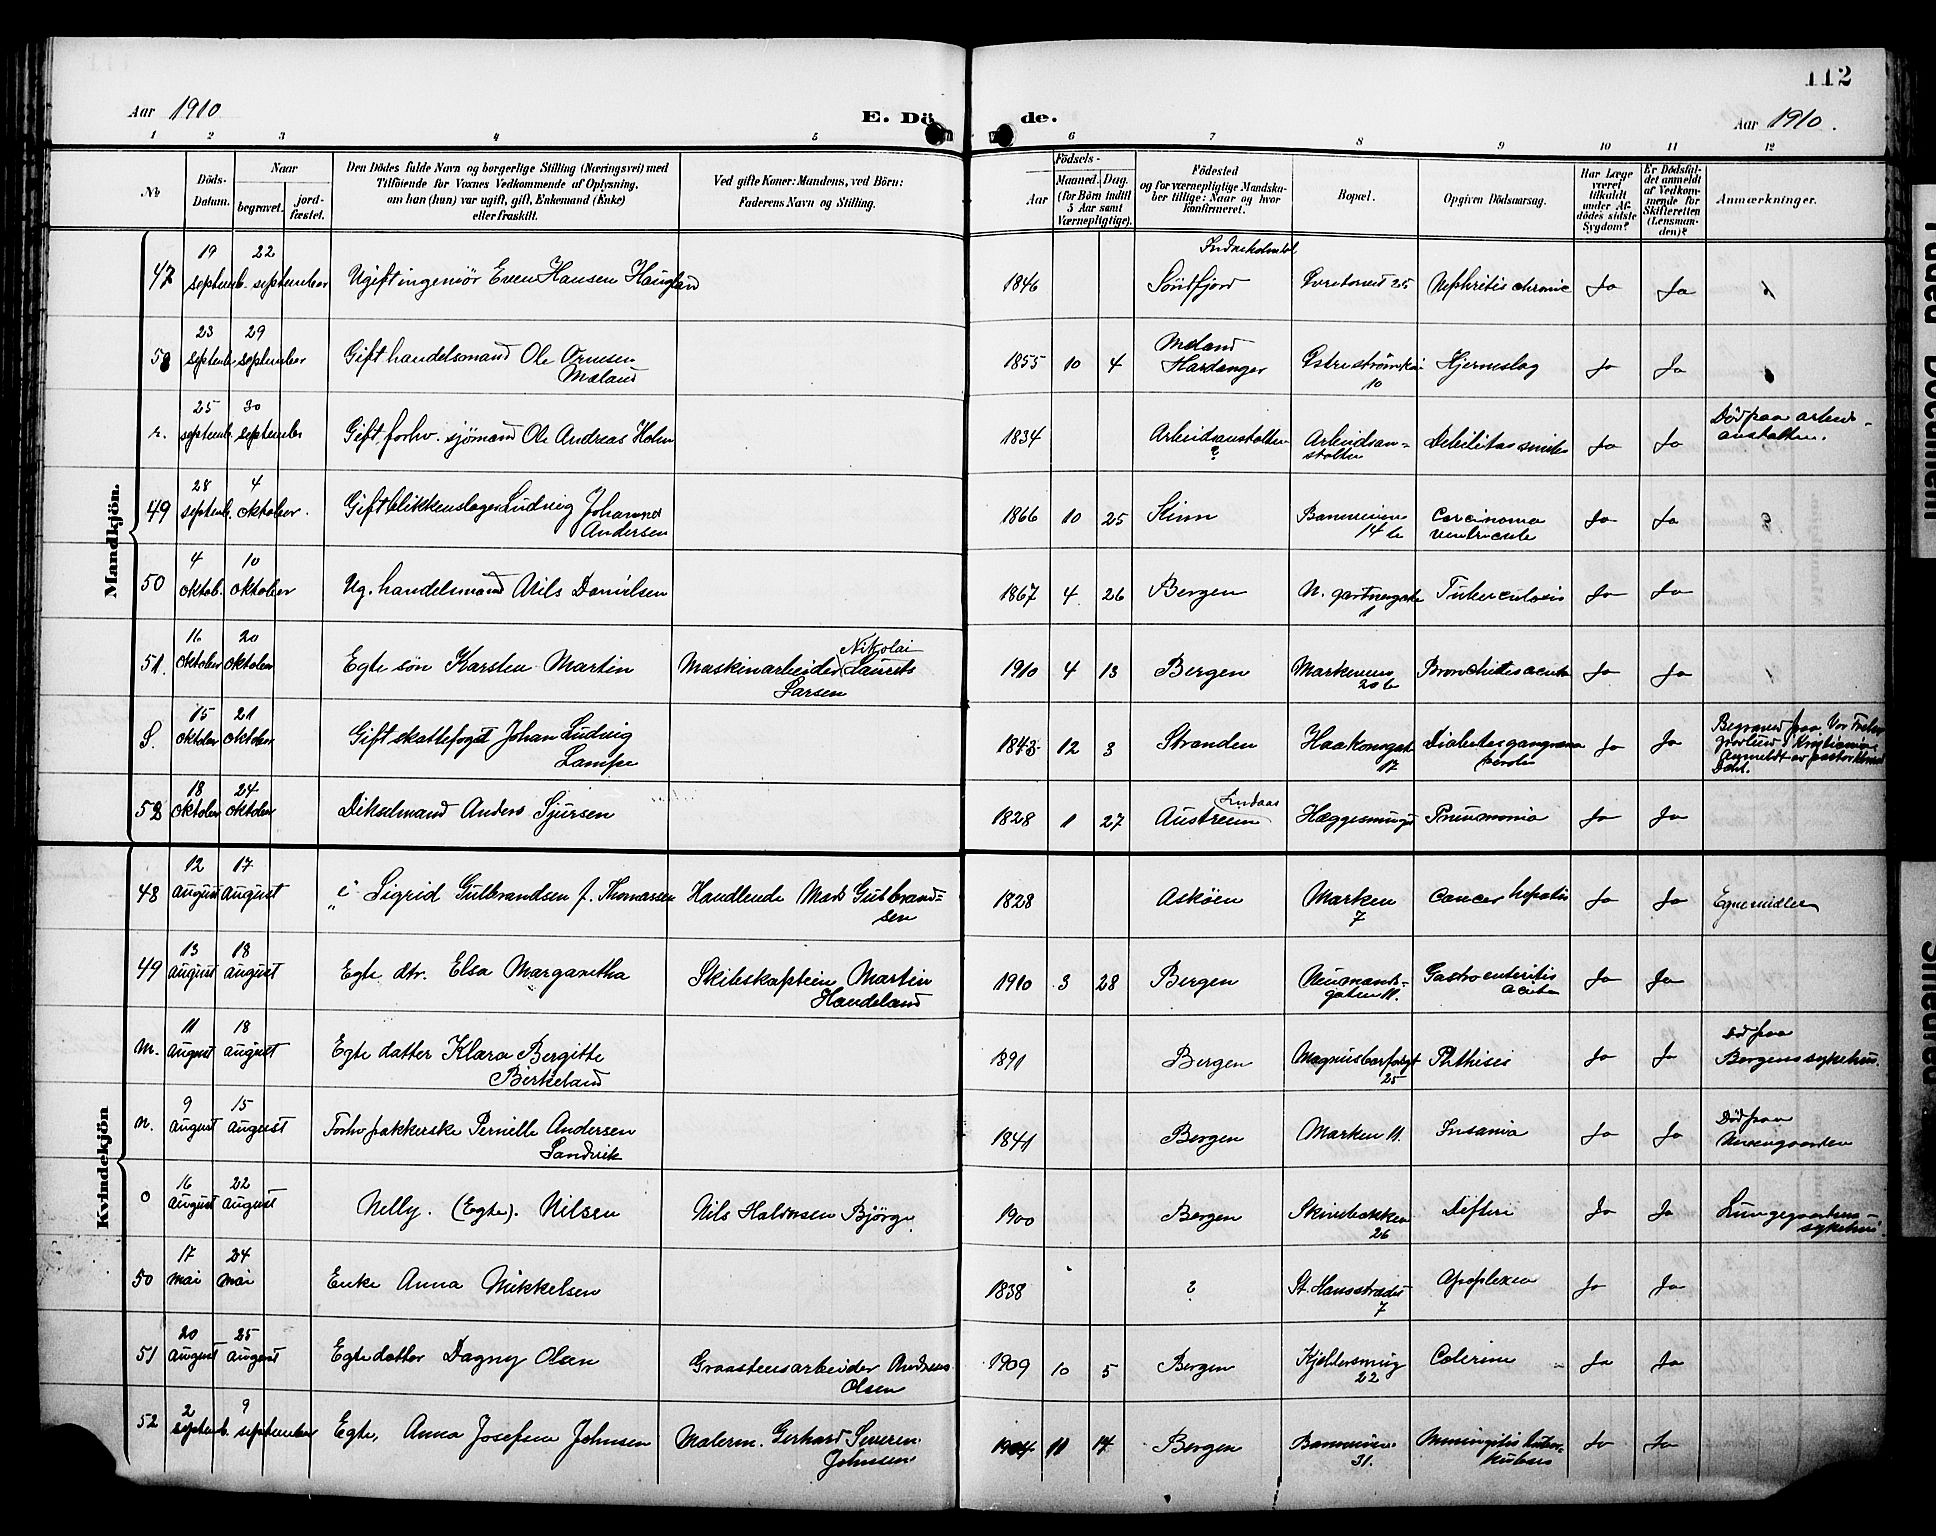 112
Aar 1910
E. Dö
de.
Aar 1910.
1 2 3 4 5 6 7 8 9 10 11 12
No
Döds-
Datum.
Naar
begravet.
jord-
fæstet.
Den Dödes fulde Navn og borgerlige Stilling (Næringsvei) med
Tilföiende for Voxnes Vedkommende af Oplysning,
om han (hun) var ugift, gift, Enkemand (Enke)
eller fraskilt.
Ved gifte Koner: Mandens, ved Börn:
Faderens Navn og Stilling.
Födsels-
Aar
Maaned.
Dag.
(for Börn indtil
5 Aar samt
Værnepligtige).
Födested
og for værnepligtige Mandska-
ber tillige: Naar og hvor
konfirmeret.
Bopæl.
Opgiven Dödsaarsag.
Har Læge
været
tilkaldt
under Af-
dödes sidste
Sygdom?
Er Dödsfal-
det anmeldt
af Vedkom-
mende for
Skifteretten
(Lensman-
den)?
Anmærkninger.
Mandkjön.
47 19 septemb. 22 september Ugift ingeniør Even Hansen Haugland 1846 Söndfjord 25 Nephritis chronic Ja Ja
23 septemb. 29 september Gift handelsmand Ole Ornesen
Mæland 1855 10 4 Mæland
Hardanger 10 Hjerneslag Ja Ja
r. 25 septemb. 30 september Gift, forhv. sjömand Ole Andreas Holm 1834 Arbeidsanstalten
? Arbeidsan-
stalten Debilitas senilis Ja Ja Död paa arbeids-
anstalten.
49 28 septemb. 4 oktober. Gift blikkenslager Ludvig Johannes
Andersen 1866 10 25 Kinn 14 b Carcinoma
ventriculi Ja Ja
50 4 oktob. 10 oktober Ug. handelsmand Nils Danielsen 1867 4 26 Bergen N. gartnergate
1 Tuberculosis Ja Ja
51. 16 oktober 20 oktober Egte sön Karsten Martin Maskinarbeider Nikolai Laurits
Larsen 1910 4 13 Bergen Markeveien
20 b Bronchitis acuta Ja Ja
S. 15 oktober 21 oktober Gift skattefoged Johan Ludvig
Lampe 1843 12 3 Stranden Haakonsgat
17 Diabetes gangræna Ja Ja Begravet paa Vor Frelser
gravlund i Kristiania
52 18 oktober 24 oktober Anders Sjursen 1828 1 27 Lindaas
Austreim Hæggesmuget Pneumonia Ja Ja
Kvindekjön
48 12 august 17 august Sigrid Gulbrandsen f. Thomassen Handlende Mads Gulbrand=
sen 1828 Asköen Marken
7 Cancer hepatis Ja Ja Egne midler
49 13 august 18 august Egte dtr. Elsa Margaretha Skibskaptein Martin
Handeland 1910 3 28 Bergen Neumands-
gaten 11. Gastroenteritis
acuta Ja Ja
m. 11 august 18 august Egte datter Klara Bergitte
Birkeland 1891 Bergen Magnus barfodsgt
25 Phthisis Ja Ja Död paa
Bergens sykehus.
n. 9 august 15 august Forhv. pakkerske Pernille Andersen
Sandvik 1841 Bergen Marken 11. Insania Ja Ja Död paa
Neevengaarden
o 16 august 22 august Nelly. (Egte). Nilsen Nils Halvorsen Björge 1900 Bergen Skivebakken
26 Difteri Ja Ja Lungegaardens
sykehus.
50 17 mai 24 mai Enke Anna Mikkelsen 1838 ? St. Hansstrædet
7 Apoplexia Ja Ja
51 20 august 25 august Egte datter Dagny Olsen Graastensarbeider Andreas
Olsen 1909 10 5 Bergen Kjeldersmug
22 Colerine Ja Ja
52 2 septemb. 9 september Egte, Anna Josefine Johnsen Malerm. Gerhard Severin
Johnsen 1904 11 14 Bergen 31. Meningitis tuber-
kulosis Ja Ja